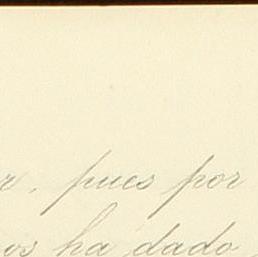 r, pues por
os ha dado